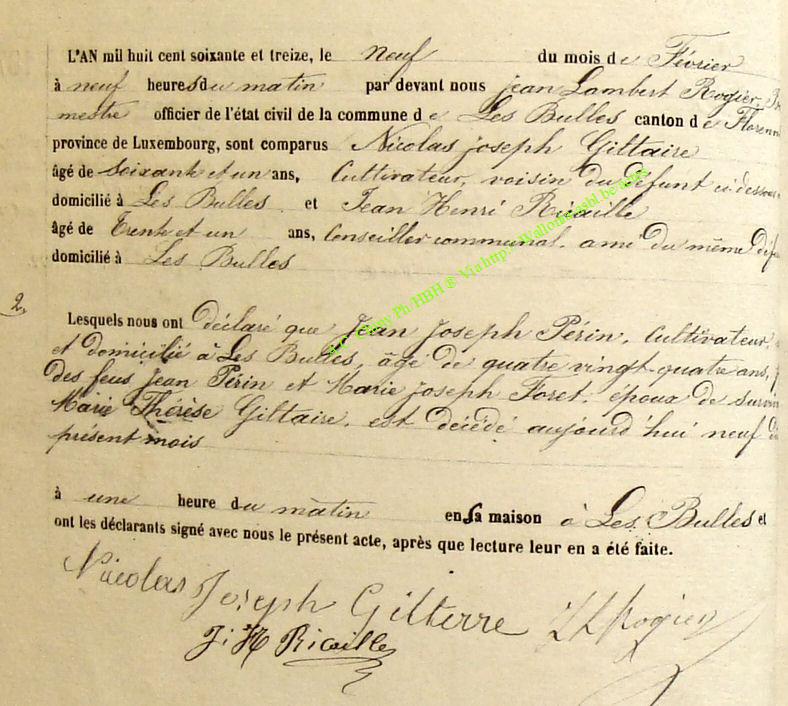 L'AN mil huit cent soixante et treize, le neuf du mois de Février
à neuf heures du matin par devant nous Jean Lambert Rogier,
mestre officier de l'état civil de la commune de Les Bulles canton de Floren
province de Luxembourg, sont comparus Nicolas Joseph Giltaire
âgé de soixante et un ans, Cultivateur, voisin du défunt ci dessous
domicilié à Les Bulles et Jean Henri Ricaille
âgé de Trente et un ans, Conseiller communal, ami du même défu
domicilié à Les Bulles
2.
Lesquels nous ont déclaré que Jean Joseph Périn, Cultivateur,
et domicilié à Les Bulles, âgé de quatre vingt quatre ans,
des feus Jean Périn et Marie Joseph Foret, époux de survi
Marie Thérèse Giltaire, est décédé aujourd'hui neuf d
présent mois
à une heure du matin en sa maison à Les Bulles et
ont les déclarants signé avec nous le présent acte, après que lecture leur en a été faite.
Nicolas Joseph Gilterre JLRogier
J. H Ricaille
Copy Ph HBH ®